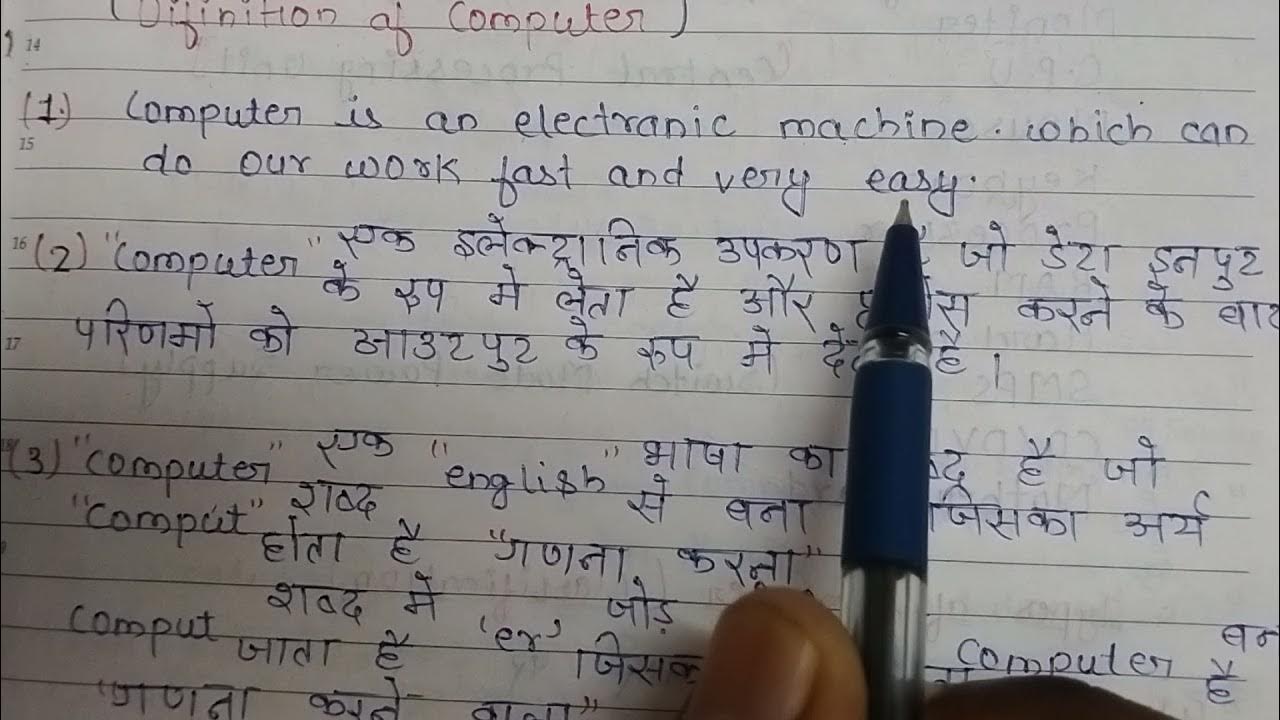 (Difinition of Computer)
(1.) Computer is an electranic machine. which can
do our work fast and very easy.
(2) "Computer" एक इलैक्ट्रानिक उपकरण जो डेटा इनपुट
के रुप मे लेता है और करने के बाद
परिणमों को आउटपुट के रुप में है।
(3) "Computer" एक "english" भाषा का है जो
"Comput" शब्द से बना जिसका अर्थ
होता है "गणना करना"
Comput शब्द में 'er' जोड़
जाता है Computer
"गणना करने वाला" है